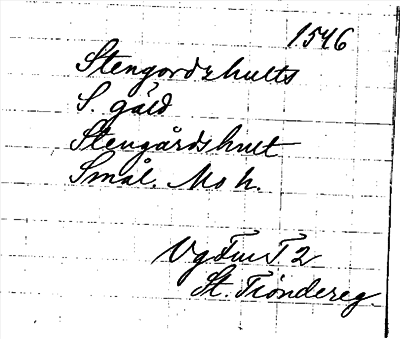 1546
Stengordzhults
S. gäld
Stengårdshult
Smål. Mo h.
Vg Fur T. 2
St. Tiondereg.